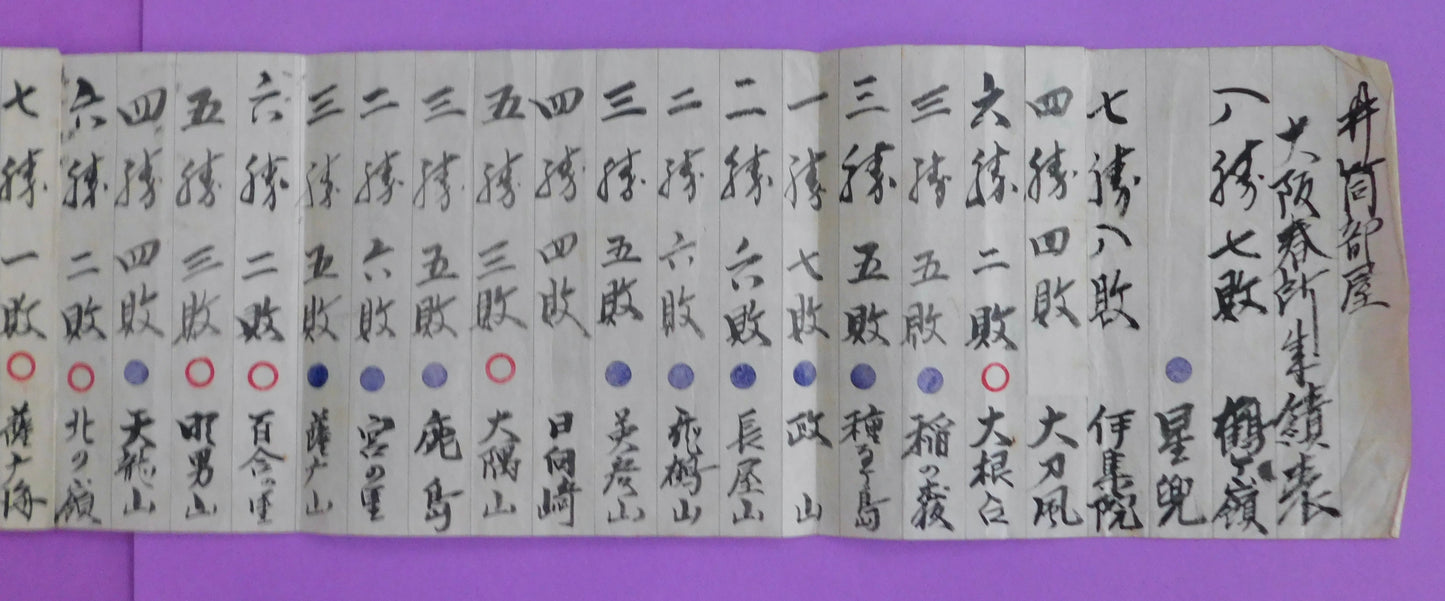 井筒部屋
大阪春場所成績表
八勝七敗 鶴ヶ嶺
星兜
七勝八敗 伊集院
四勝四敗 大刀風
六勝二敗 大根占
三勝五敗 稲の
三勝五敗 種子島
一勝七敗 政山
二勝六敗 長屋山
二勝六敗 飛鶴山
三勝五敗 英彦山
四勝四敗 日向崎
五勝三敗 大隅山
三勝五敗 鹿島
二勝六敗 宮の里
三勝五敗 薩ナ山
六勝二敗 百合の里
五勝三敗 男山
四勝四敗 天龍山
六勝二敗 北の嶺
七勝一敗 薩ナ海